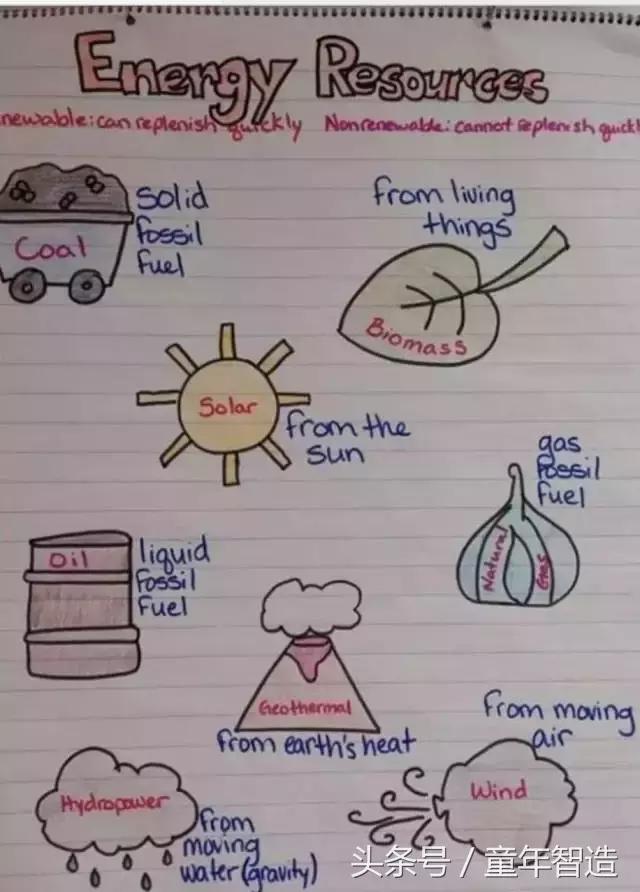 Energy Resources
newable: can replenish quickly Nonrenewable: cannot replenish quickl
Coal
solid
fossil
fuel
from living
things
Biomass
Solar
from the
sun
gas
fossil
fuel
Natural
Gas
Oil
liquid
fossil
fuel
Geothermal
from earth's heat
from moving
air
Wind
Hydropower
from
moving
water (gravity)
头条号 / 童年智造